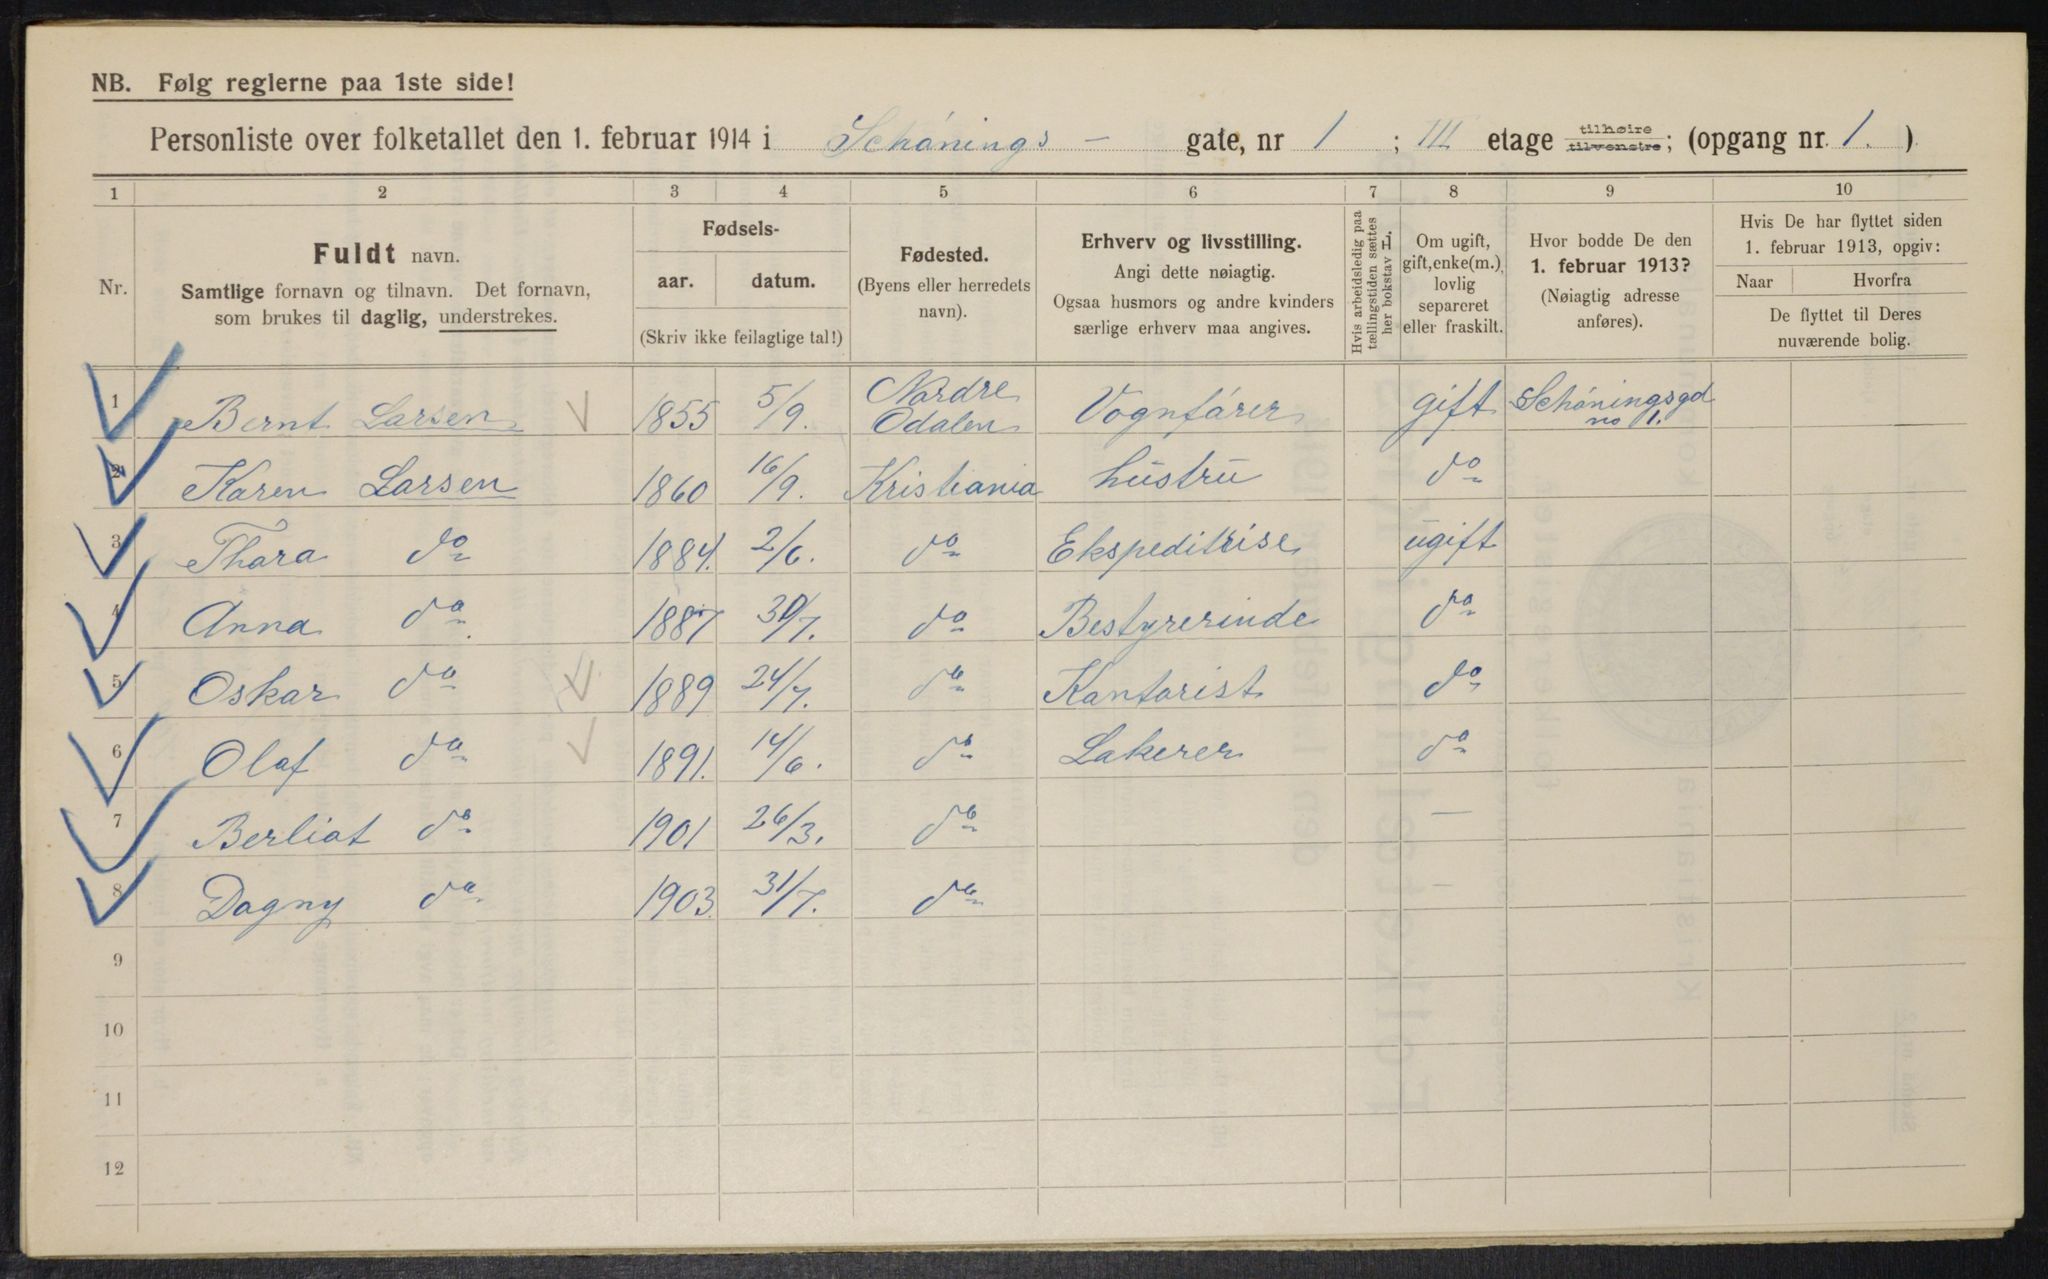 NB. Følg reglerne paa 1ste side!
Personliste over folketallet den 1. februar 1914 i Schønings - gate, nr 1 ; III etage tilhøire tilvenstre; (opgang nr. 1. )
1 2 3 4 5 6 7 8 9 10
Nr.
Fuldt navn.
Samtlige fornavn og tilnavn. Det fornavn,
som brukes til daglig, understrekes.
Fødsels-
aar. datum.
(Skriv ikke feilagtige tal!)
Fødested.
(Byens eller herredets
navn).
Erhverv og livsstilling.
Angi dette nøiagtig.
Ogsaa husmors og andre kvinders
særlige erhverv maa angives.
Hvis arbeidsledig paa
tællingstiden sættes
her bokstav H.
Om ugift,
gift, enke(m.),
lovlig
separeret
eller fraskilt.
Hvor bodde De den
1. februar 1913?
(Nøiagtig adresse
anføres).
Hvis De har flyttet siden
1. februar 1913, opgiv:
Naar Hvorfra
De flyttet til Deres
nuværende bolig.
1 Bernt Larsen 1855 5/9. Nordre Odalen Vognfører gift Schøningsgd no 1.
2 Karen Larsen 1860 16/9. Kristiania hustru do
3 Thora do 1884. 2/6. do Ekspeditrise ugift
4 Anna do 1887 30/7. do Bestyrerinde do
5 Oskar do 1889 24/7. do Kontorist do
6 Olaf do 1891. 14/6. do Lakerer do
7 Berliot do 1901 26/3. do —
8 Dagny do 1903. 31/7. do —
9
10
11
12